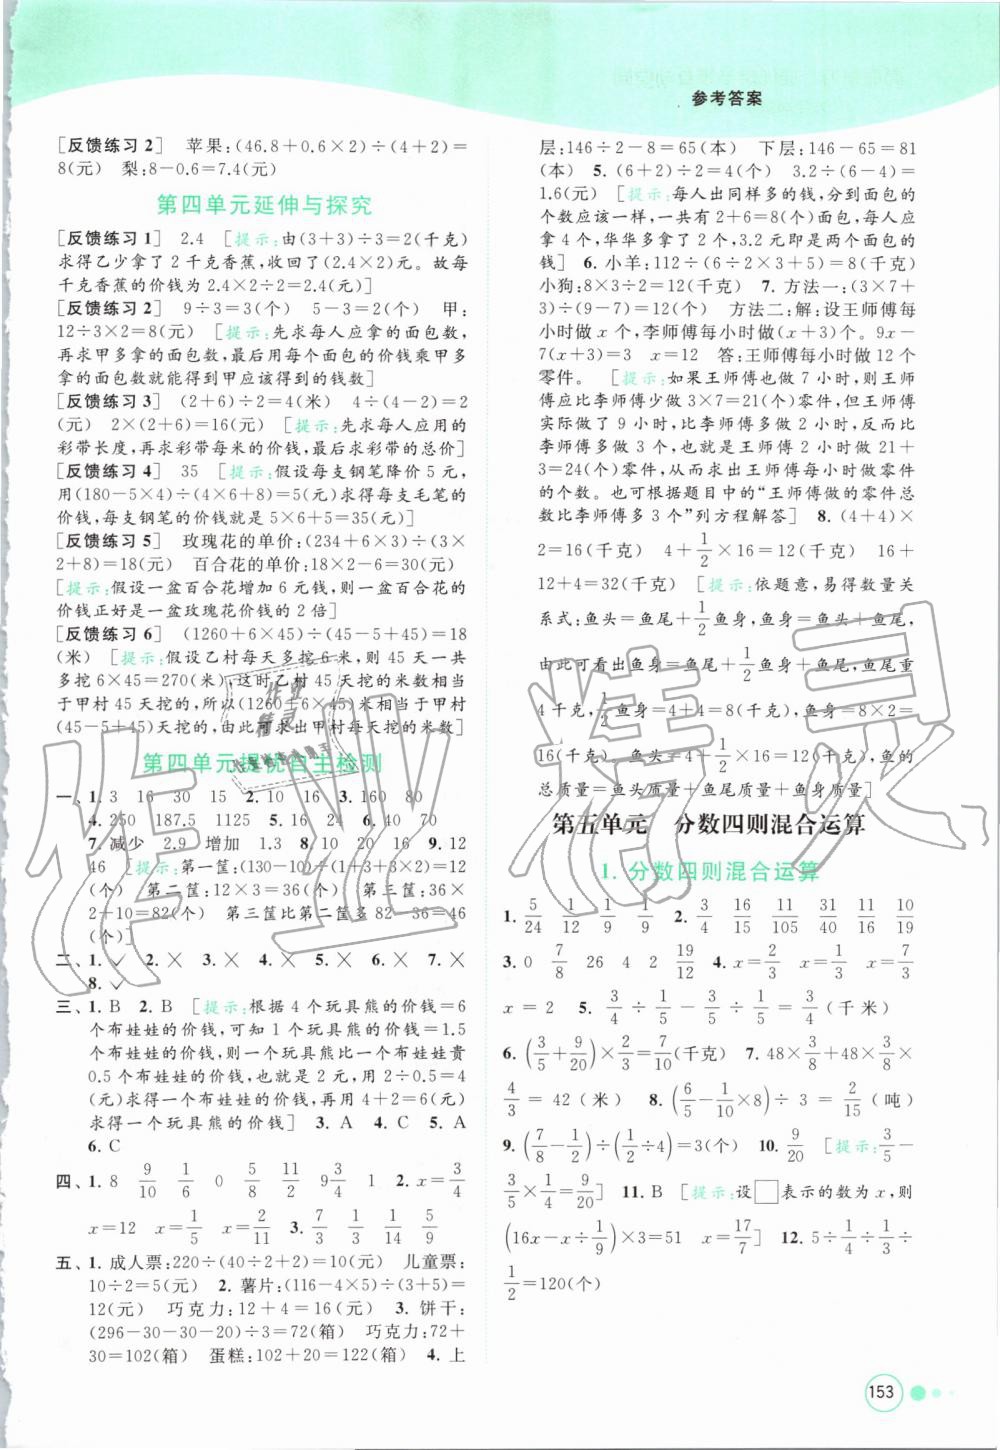 参考答案
[反馈练习2] 苹果:(46.8+0.6×2)÷(4+2)=
8(元) 梨:8-0.6=7.4(元)
第四单元延伸与探究
[反馈练习1] 2.4 [提示:由(3+3)÷3=2(千克)
求得乙少拿了2千克香蕉,收回了(2.4×2)元。故每
千克香蕉的价钱为2.4×2÷2=2.4(元)]
[反馈练习2] 9÷3=3(个) 5-3=2(个) 甲:
12÷3×2=8(元) [提示:先求每人应拿的面包数,
再求甲多拿的面包数,最后用每个面包的价钱乘甲多
拿的面包数就能得到甲应该得到的钱数]
[反馈练习3] (2+6)÷2=4(米) 4÷(4-2)=2
(元) 2×(2+6)=16(元) [提示:先求每人应用的
彩带长度,再求彩带每米的价钱,最后求彩带的总价]
[反馈练习4] 35 [提示:假设每支钢笔降价5元,
用(180-5×4)÷(4+6×2)=5(元)求得每支毛笔的
价钱,每支钢笔的价钱就是5×6+5=35(元)]
[反馈练习5] 玫瑰花的单价:(234+6×3)÷(3×
2+8)=18(元) 百合花的单价:18×2-6=30(元)
[提示:假设一盆百合花增加6元钱,则一盆百合花的
价钱正好是一盆玫瑰花价钱的2倍]
[反馈练习6] (1260+6×45)÷(45-5+45)=18
(米) [提示:假设乙村每天多挖6米,则45天一共
多挖6×45=270(米),这时乙村45天挖的米数相当
于甲村45天挖的,所以(1260+6×45)米相当于甲村
(45-5+45)天挖的,由此可求出甲村每天挖的米数]
第四单元提优自主检测
一、1. 3 16 30 15 2. 10 16 3. 160 80
4. 250 187.5 1125 5. 16 24 6. 40 70
7. 减少 2.9 增加 1.3 8. 10 20 16 9. 12
46 [提示:第一筐:(130-10)÷(1+3+3×2)=12
(个) 第二筐:12×3=36(个) 第三筐:36×
2+10=82(个) 第三筐比第二筐多82-36=46
(个)]
二、1. ✓ 2. × 3. × 4. × 5. × 6. × 7. ×
8. ✓
三、1. B 2. B [提示:根据4个玩具熊的价钱=6
个布娃娃的价钱,可知1个玩具熊的价钱=1.5
个布娃娃的价钱,则一个玩具熊比一个布娃娃贵
0.5个布娃娃的价钱,也就是2元,用2÷0.5=4
(元)求得一个布娃娃的价钱,再用4+2=6(元)
求得一个玩具熊的价钱] 3. A 4. C 5. A
6. C
四、1. 8 9/10 1/6 0 5/8 11/2 9 3/4 1 2. x=3/4
x=12 x=1/5 x=2/11 3. 7/3 1/3 1/14 5/9
五、1. 成人票:220÷(40÷2+2)=10(元) 儿童票:
10÷2=5(元) 2. 薯片:(116-4×5)÷(3+5)=
12(元) 巧克力:12+4=16(元) 3. 饼干:
(296-30-30-20)÷3=72(箱) 巧克力:72+
30=102(箱) 蛋糕:102+20=122(箱) 4. 上
层:146÷2-8=65(本) 下层:146-65=81
(本) 5. (6+2)÷2=4(个) 3.2÷(6-4)=
1.6(元) [提示:每人出同样多的钱,分到面包的
个数应该一样,一共有2+6=8(个)面包,每人应
拿4个,华华多拿了2个,3.2元即是两个面包的
钱] 6. 小羊:112÷(6÷2×3+5)=8(千克)
小狗:8×3÷2=12(千克) 7. 方法一:(3×7+
3)÷(9-7)=12(个) 方法二:解:设王师傅每
小时做x个,李师傅每小时做(x+3)个。9x-
7(x+3)=3 x=12 答:王师傅每小时做12个
零件。 [提示:如果王师傅也做7小时,则王师
傅应比李师傅少做3×7=21(个)零件,但王师傅
实际做了9小时,比李师傅多做2小时,反而比
李师傅多做3个,也就是王师傅2小时做21+
3=24(个)零件,从而求出王师傅每小时做零件
的个数。也可根据题目中的“王师傅做的零件总
数比李师傅多3个”列方程解答] 8. (4+4)×
2=16(千克) 4+1/2×16=12(千克) 4+
12+16=32(千克) [提示:依题意,易得数量关
系式:鱼头=鱼尾+1/2鱼身,鱼身=鱼头+鱼尾,
由此可看出鱼身=鱼尾+1/2鱼身+鱼尾,鱼尾重
4千克,1/2鱼身=4+4=8(千克),鱼身=8×2=
16(千克) 鱼头=4+1/2×16=12(千克),鱼的
总质量=鱼头质量+鱼尾质量+鱼身质量]
第五单元 分数四则混合运算
1. 分数四则混合运算
1. 5/24 1/12 1/9 1/9 2. 3/4 16/15 11/105 31/40 11/16 10/19
3. 0 7/8 26 4 2 19/12 4. x=2/3 x=1/3 x=7/3
x=2 5. 3/4÷1/5-3/5÷1/5=3/4(千米)
6. (3/5+9/20)×2/3=7/10(千克) 7. 48×3/8+48×3/8×
4/3=42(米) 8. (6/5-1/10×8)÷3=2/15(吨)
9. (7/8-1/2)÷(1/2÷4)=3(个) 10. 9/20 [提示:3/5-
3/5×1/4=9/20] 11. B [提示:设□表示的数为x,则
(16x-x÷1/9)×3=51 x=17/7] 12. 5÷1/4÷1/3÷
1/2=120(个)
153
作业精灵